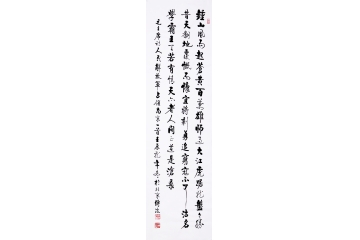 鍾山風雨起蒼黃百萬雄師过大江虎踞龍盤今勝
昔天翻地覆慨而慷宜將剩勇追窮寇不可沽名
學霸王天若有情天亦老人間正道是滄桑
毛主席詩人民解放軍占領南京一首